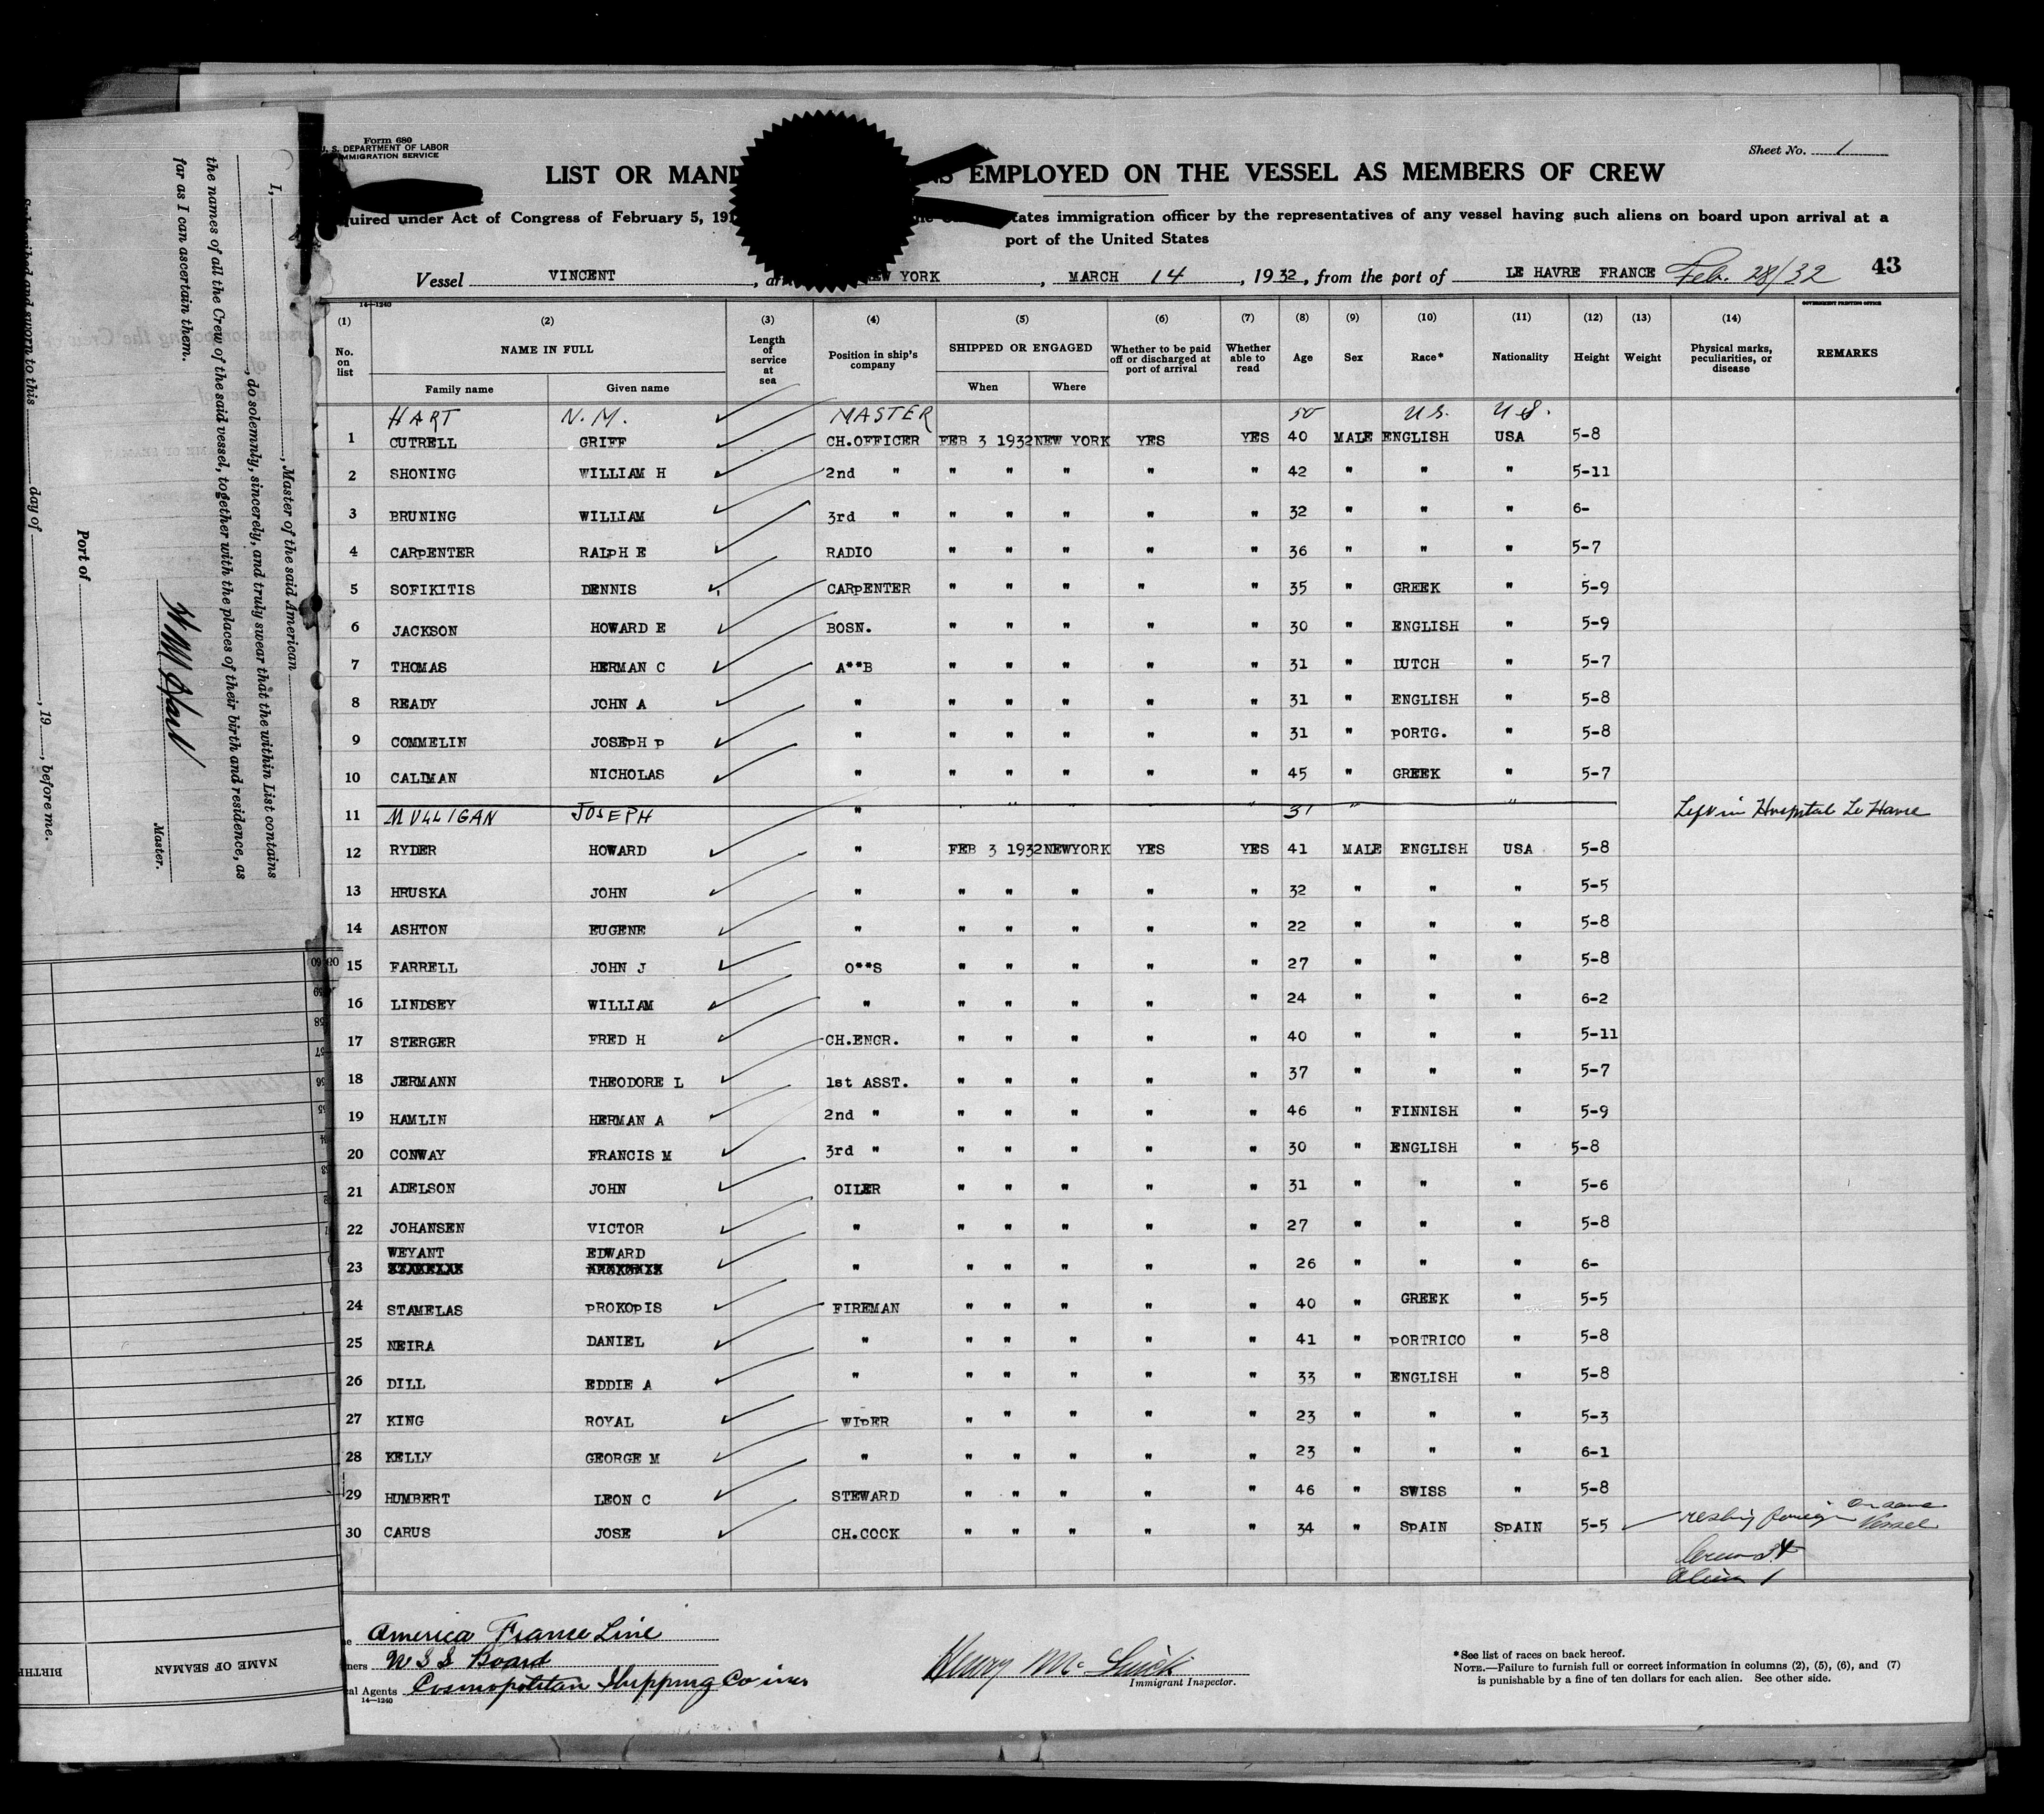 Form 680
U. S. DEPARTMENT OF LABOR
IMMIGRATION SERVICE
Sheet No. 1
LIST OR MANI AS EMPLOYED ON THE VESSEL AS MEMBERS OF CREW
quired under Act of Congress of February 5, 191 tates immigration officer by the representatives of any vessel having such aliens on board upon arrival at a
port of the United States
Vessel VINCENT, EW YORK, MARCH 14, 1932, from the port of LE HAVRE FRANCE Feb. 28/32 43
14—1240
GOVERNMENT PRINTING OFFICE
(1) (2) (3) (4) (5) (6) (7) (8) (9) (10) (11) (12) (13) (14)
No. on list NAME IN FULL Family name Given name Length of service at sea Position in ship's company SHIPPED OR ENGAGED When Where Whether to be paid off or discharged at port of arrival Whether able to read Age Sex Race* Nationality Height Weight Physical marks, peculiarities, or disease REMARKS
HART N. M. MASTER 50 U.S. U.S.
1 CUTRELL GRIFF CH.OFFICER FEB 3 1932 NEW YORK YES YES 40 MALE ENGLISH USA 5-8
2 SHONING WILLIAM H 2nd " " " " " " 42 " " " 5-11
3 BRUNING WILLIAM 3rd " " " " " " 32 " " " 6-
4 CARpENTER RALpH E RADIO " " " " " 36 " " " 5-7
5 SOFIKITIS DENNIS CARpENTER " " " " " 35 " GREEK " 5-9
6 JACKSON HOWARD E BOSN. " " " " " 30 " ENGLISH " 5-9
7 THOMAS HERMAN C A**B " " " " " 31 " DUTCH " 5-7
8 READY JOHN A " " " " " " 31 " ENGLISH " 5-8
9 COMMELIN JOSEpH p " " " " " " 31 " pORTG. " 5-8
10 CALIMAN NICHOLAS " " " " " " 45 " GREEK " 5-7
11 MULLIGAN JOSEPH " " " 31 " " Left in Hospital Le Havre
12 RYDER HOWARD " FEB 3 1932 NEWYORK YES YES 41 MALE ENGLISH USA 5-8
13 HRUSKA JOHN " " " " " " 32 " " " 5-5
14 ASHTON EUGENE " " " " " " 22 " " " 5-8
15 FARRELL JOHN J O**S " " " " " 27 " " " 5-8
16 LINDSEY WILLIAM " " " " " " 24 " " " 6-2
17 STERGER FRED H CH.ENGR. " " " " " 40 " " " 5-11
18 JERMANN THEODORE L 1st ASST. " " " " " 37 " " " 5-7
19 HAMLIN HERMAN A 2nd " " " " " " 46 " FINNISH " 5-9
20 CONWAY FRANCIS M 3rd " " " " " " 30 " ENGLISH " 5-8
21 ADELSON JOHN OILER " " " " " 31 " " " 5-6
22 JOHANSEN VICTOR " " " " " " 27 " " " 5-8
WEYANT EDWARD
23 " " " " " " 26 " " " 6-
24 STAMELAS pROKOpIS FIREMAN " " " " " 40 " GREEK " 5-5
25 NEIRA DANIEL " " " " " " 41 " pORTRICO " 5-8
26 DILL EDDIE A " " " " " " 33 " ENGLISH " 5-8
27 KING ROYAL WIpER " " " " " 23 " " " 5-3
28 KELLY GEORGE M " " " " " " 23 " " " 6-1
29 HUMBERT LEON C STEWARD " " " " " 46 " SWISS " 5-8
30 CARUS JOSE CH.COOK " " " " " 34 " SpAIN SpAIN 5-5 reship foreign on same Vessel
Crew 34
Alien 1
America France Line
ners U S S Board
al Agents Cosmopolitan Shipping Co inc
14—1240
Henry Mc
Immigrant Inspector.
*See list of races on back hereof.
NOTE.—Failure to furnish full or correct information in columns (2), (5), (6), and (7)
is punishable by a fine of ten dollars for each alien. See other side.
I, , Master of the said American
, do solemnly, sincerely, and truly swear that the within List contains
the names of all the Crew of the said vessel, together with the places of their birth and residence, as
far as I can ascertain them.
N M Hart
Master.
Port of
Subscribed and sworn to this day of , 19 , before me.
NAME OF SEAMAN
BIRTH